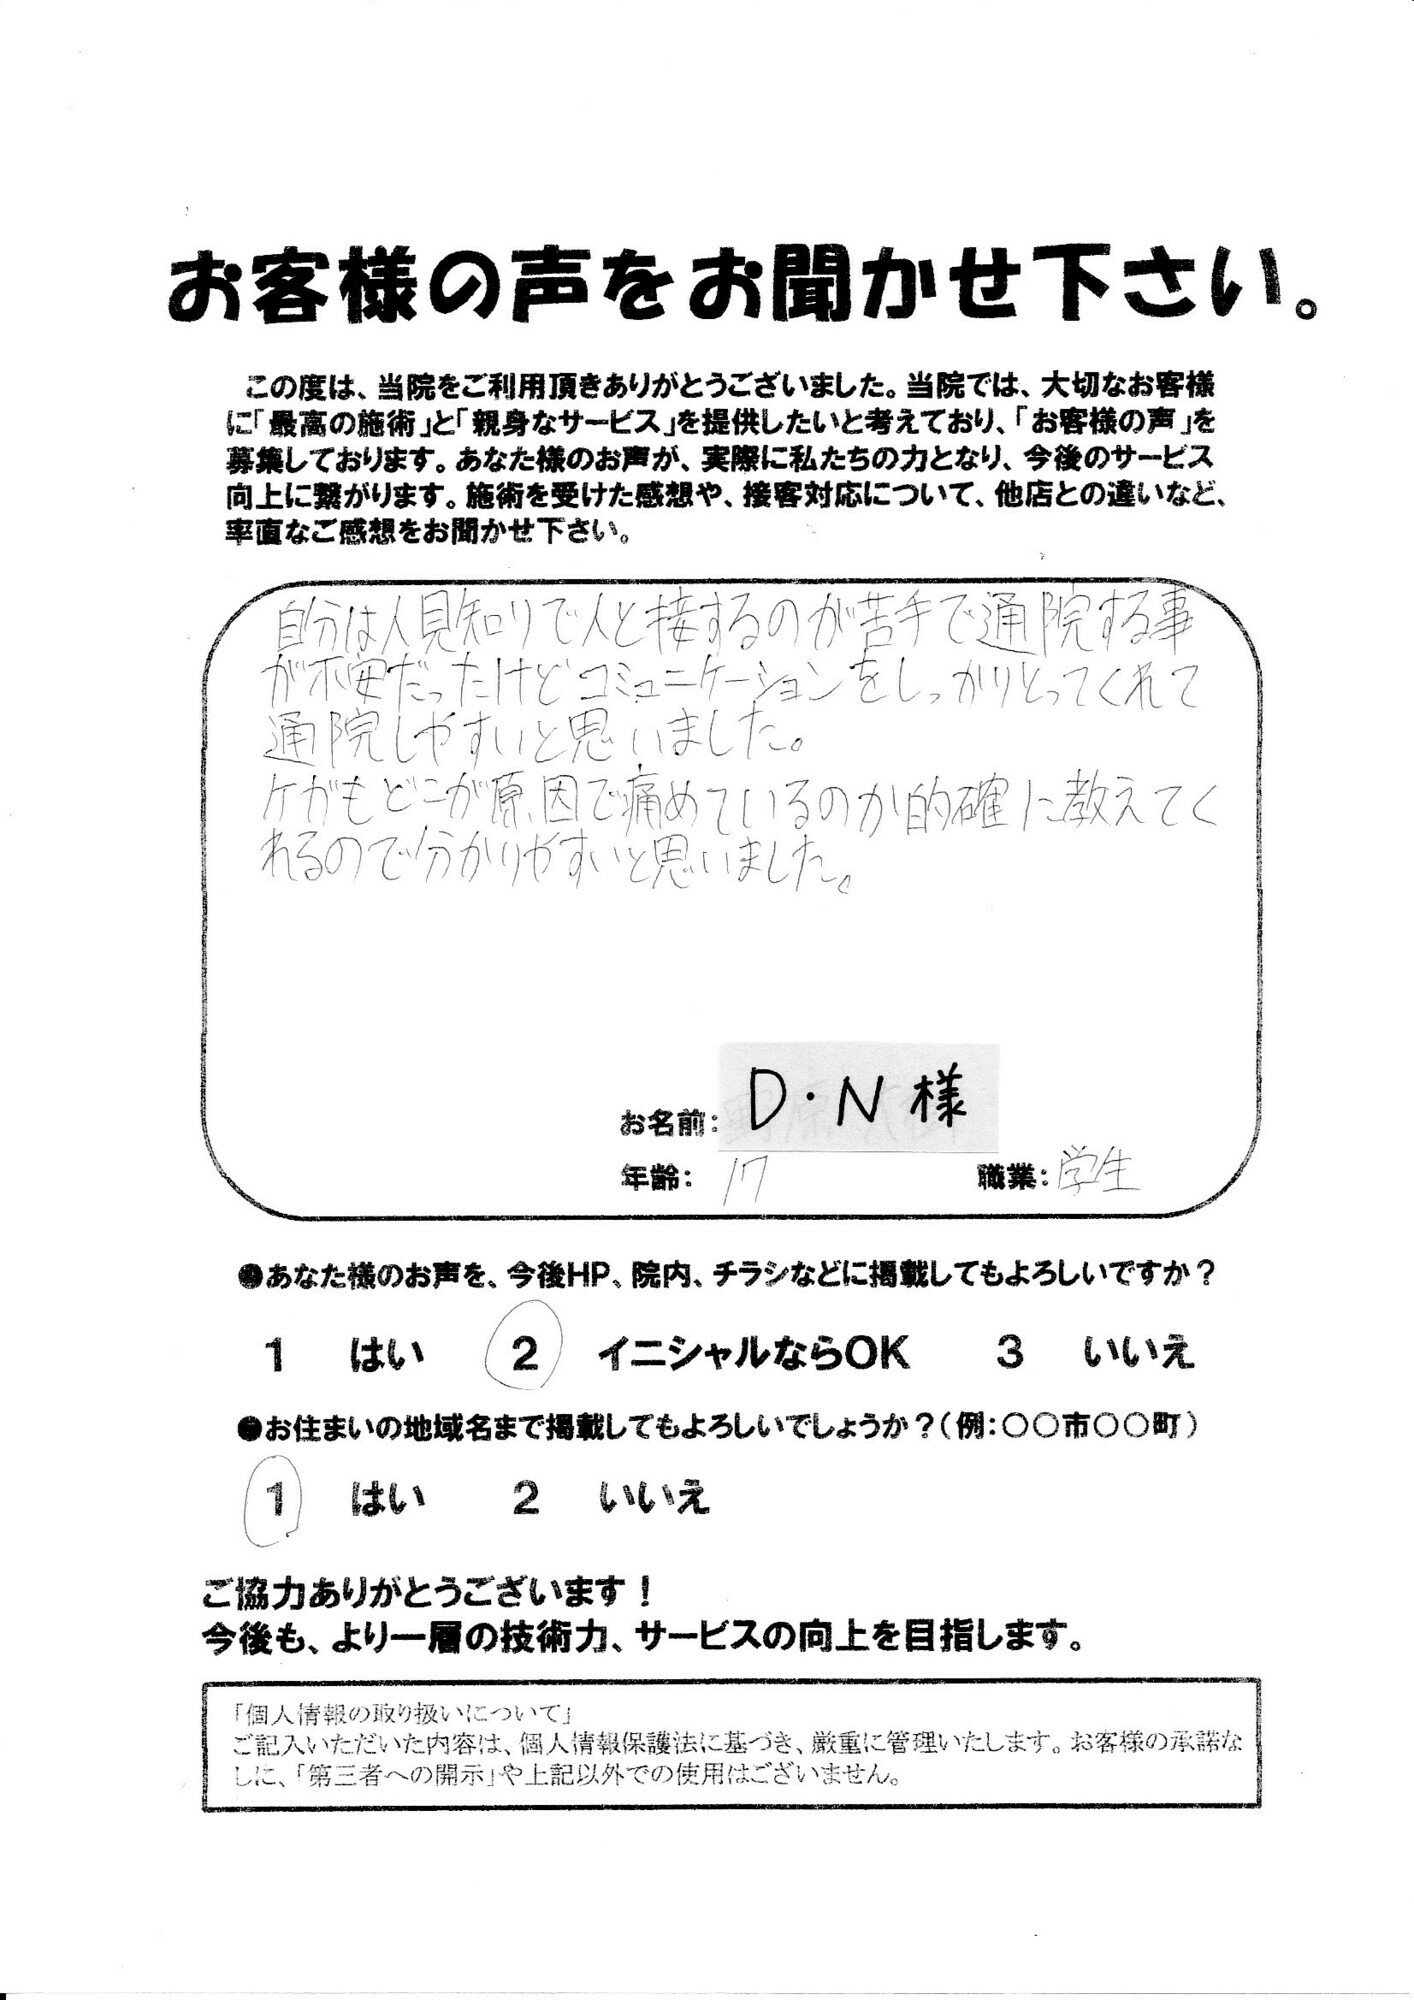 お客様の声をお聞かせ下さい。
この度は、当院をご利用頂きありがとうございました。当院では、大切なお客様
に「最高の施術」と「親身なサービス」を提供したいと考えており、「お客様の声」を
募集しております。あなた様のお声が、実際に私たちの力となり、今後のサービス
向上に繋がります。施術を受けた感想や、接客対応について、他店との違いなど、
率直なご感想をお聞かせ下さい。
自分は人見知りで人と接するのが苦手で通院する事
が不安だったけどコミュニケーションをしっかりとってくれて
通院しやすいと思いました。
ケガもどこが原因で痛めているのか的確に教えてく
れるので分かりやすいと思いました。
お名前: D・N様
年齢: 17 職業: 学生
●あなた様のお声を、今後HP、院内、チラシなどに掲載してもよろしいですか?
1 はい 2 イニシャルならOK 3 いいえ
●お住まいの地域名まで掲載してもよろしいでしょうか?(例:○○市○○町)
1 はい 2 いいえ
ご協力ありがとうございます!
今後も、より一層の技術力、サービスの向上を目指します。
「個人情報の取り扱いについて」
ご記入いただいた内容は、個人情報保護法に基づき、厳重に管理いたします。お客様の承諾な
しに、「第三者への開示」や上記以外での使用はございません。